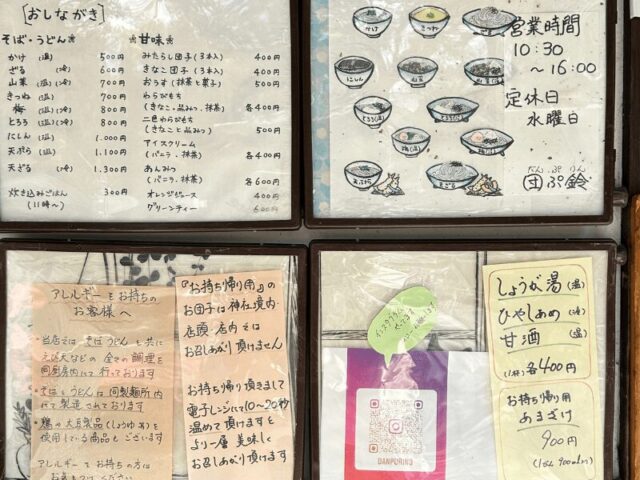 [おしながき]
そば・うどん
かけ (温) 500円
ざる (冷) 600円
山菜 (温)(冷) 700円
きつね (温) 700円
梅 (温)(冷) 800円
とろろ (温)(冷) 800円
にしん (温) 1.000円
天ぷら (温) 1.100円
天ざる (冷) 1.300円
炊き込みごはん 300円
(11時〜)
甘味
みたらし団子 (3本入) 400円
きなこ団子 (3本入) 400円
おうす (抹茶と菓子) 500円
わらびもち
(きなこ・黒みつ、抹茶) 各400円
二色わらびもち
(きなこと黒みつ) 500円
アイスクリーム
(バニラ・抹茶) 各400円
あんみつ
(バニラ、抹茶) 各600円
オレンジジュース 400円
グリーンティー 600円
かけ
きつね
にしん
山菜
とろろ(温)
とろろ(冷)
梅(温)
天ぷら
天ざる
営業時間
10:30
〜16:00
定休日
水曜日
だん ぷ りん
団ぷ鈴
アレルギーをお持ちの
お客様へ
・当店では そばうどん と共に
えび天などの 全ての調理を
同厨房内にて 行っております
・そばとうどんは 同製麺所内
にて製造 されております
・鶏の大豆製品(しょうゆ)を
使用している商品もございます
アレルギーをお持ちの方は
『お持ち帰り用』の
お団子は神社境内・
店頭・店内では
お召しあがり頂けません
お持ち帰り頂きまして
電子レンジにて10〜20秒
温めて頂けますと
より一層 美味しく
お召しあがり頂けます
DANPURINO
しょうが湯 (温)
ひやしあめ (冷)
甘酒 (温)
(1杯) 各400円
お持ち帰り用
あまざけ
900円